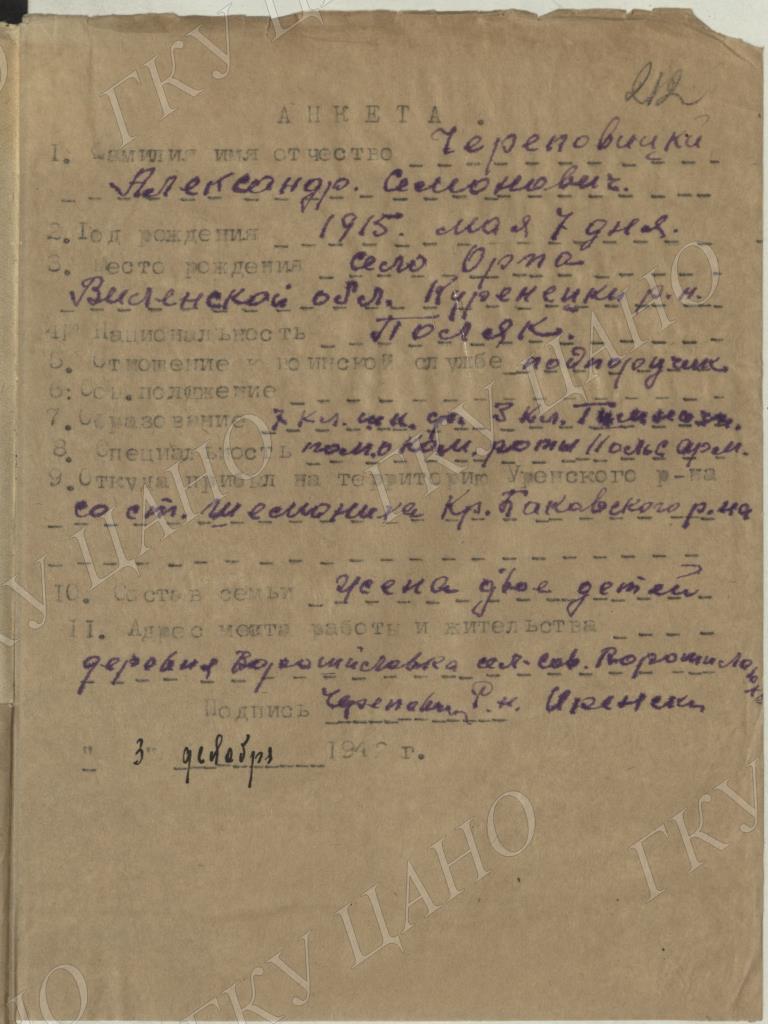 212
АНКЕТА
1. Фамилия имя отчество Череповицки
Александр. Семонович.
2. Год рождения 1915. мая 7 дня.
3. Место рождения село Орпа
Виленской обл. Куренецки р.н.
4. Национальность Поляк.
5. Отношение к воинской службе подпоручик
6. Соц. положение
7. Образование 7 кл. шк. 3 кл. Гимнази.
8. Специальность пом. ком. роты Польс арм.
9. Откуда прибыл на территорию Уренского р-на
со ст. Шеманиха Кр. Баковского р.на
10. Состав семьи жена двое детей
11. Адрес места работы и жительства
деревня Ворошиловка сел-сов. Ворошиловско
Подпись Р.н. Уренски
" 3 " декабря 194 г.